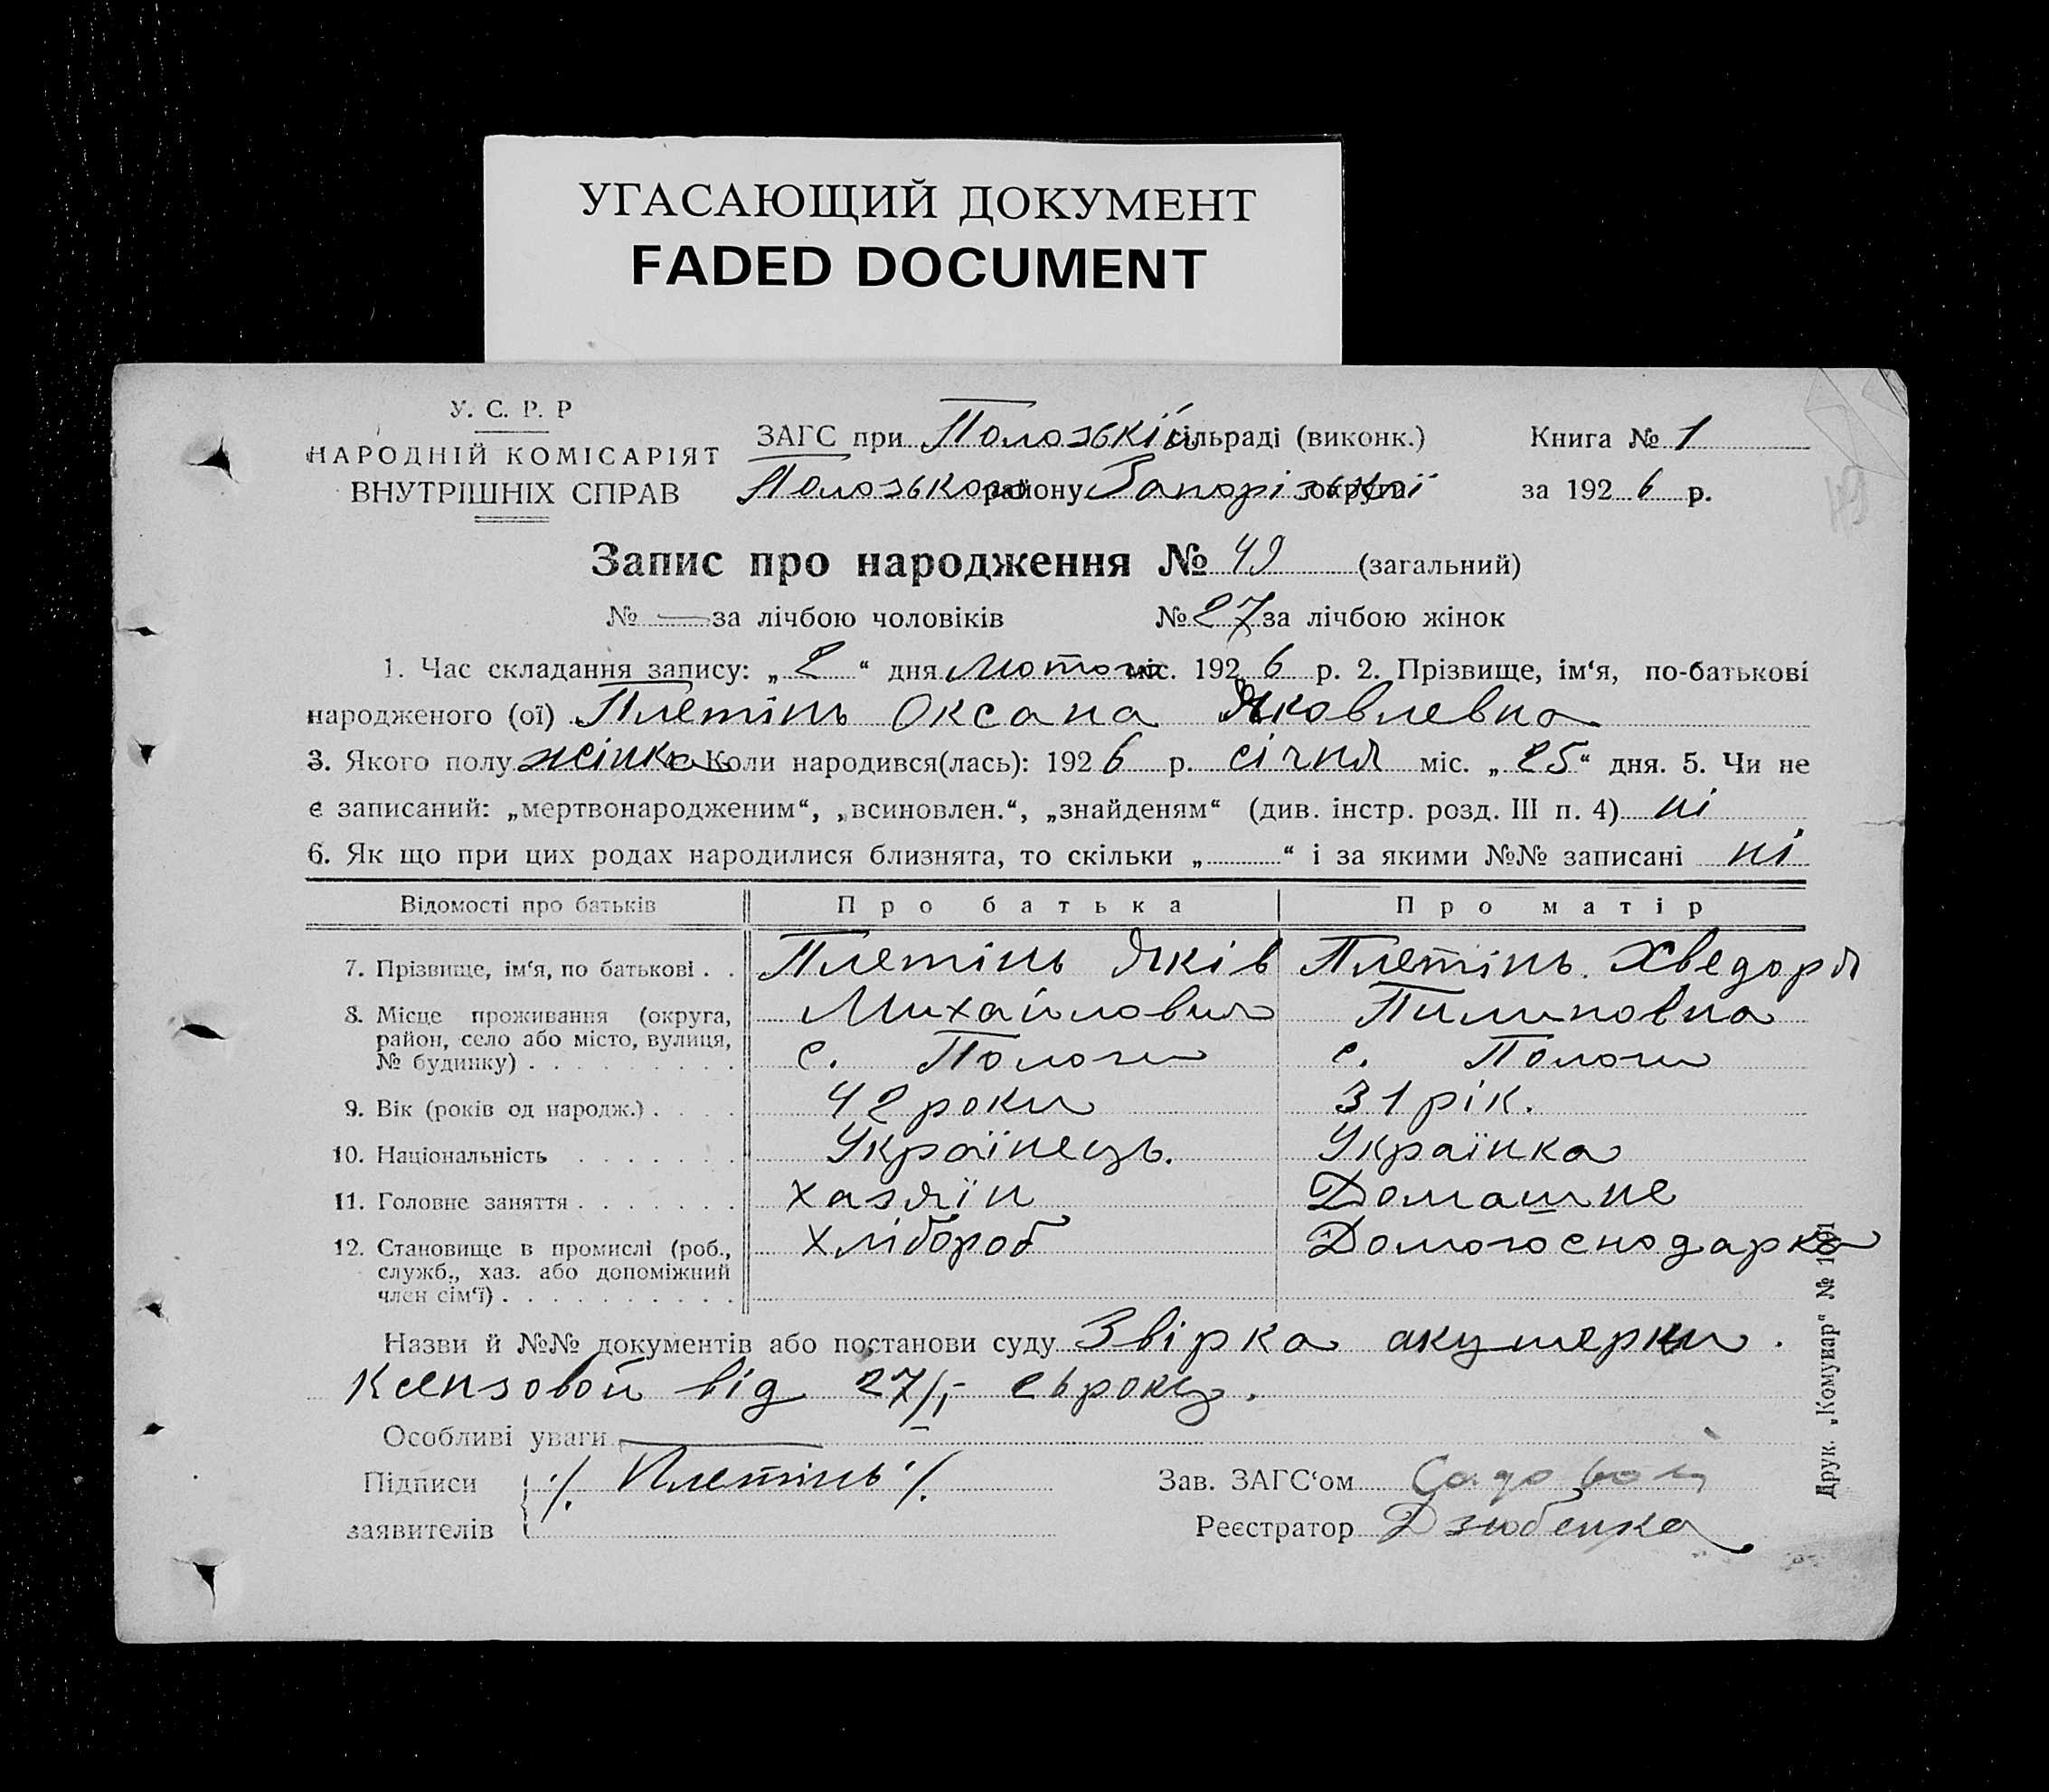 УГАСАЮЩИЙ ДОКУМЕНТ
FADED DOCUMENT
У. С. Р. Р
НАРОДНІЙ КОМІСАРІЯТ
ВНУТРІШНІХ СПРАВ
ЗАГС при Положській сільраді (виконк.)
Положського району Запорізької округи
Книга № 1
за 1926 р.
Запис про народження № 49 (загальний)
№ — за лічбою чоловіків № 27 за лічбою жінок
1. Час складання запису: „2“ дня Лютого міс. 1926 р. 2. Прізвище, ім‘я, по-батькові
народженого (ої) Плетінь Оксана Яковлевна
3. Якого полу жінка Коли народився(лась): 1926 р. січня міс. „25“ дня. 5. Чи не
є записаний: „мертвонародженим“, „всиновлен.“, „знайденям“ (див. інстр. розд. III п. 4) ні
6. Як що при цих родах народилися близнята, то скільки „ “ і за якими №№ записані ні
Відомості про батьків Про батька Про матір
7. Прізвище, ім‘я, по батькові . . Плетінь Яків Плетінь Хведоря
8. Місце проживання (округа, Михайлович Пилиповна
район, село або місто, вулиця,
№ будинку) . . . . . . . . . с. Пологи с. Пологи
9. Вік (років од народж.) . . . . 42 роки 31 рік.
10. Національність . . . . . . . Українець. Українка
11. Головне заняття . . . . . . . хазяїн Домашнє
12. Становище в промислі (роб., хлібороб Домогосподарка
служб., хаз. або допоміжний
член сім‘ї) . . . . . . . . . .
Назви й №№ документів або постанови суду Звірка акушерки
від 27/I- 26 року.
Особливі уваги
Підписи ./. Плетінь ./.
заявителів
Зав. ЗАГС‘ом
Реєстратор Дзюбенко
Друк. „Комунар“ № 1